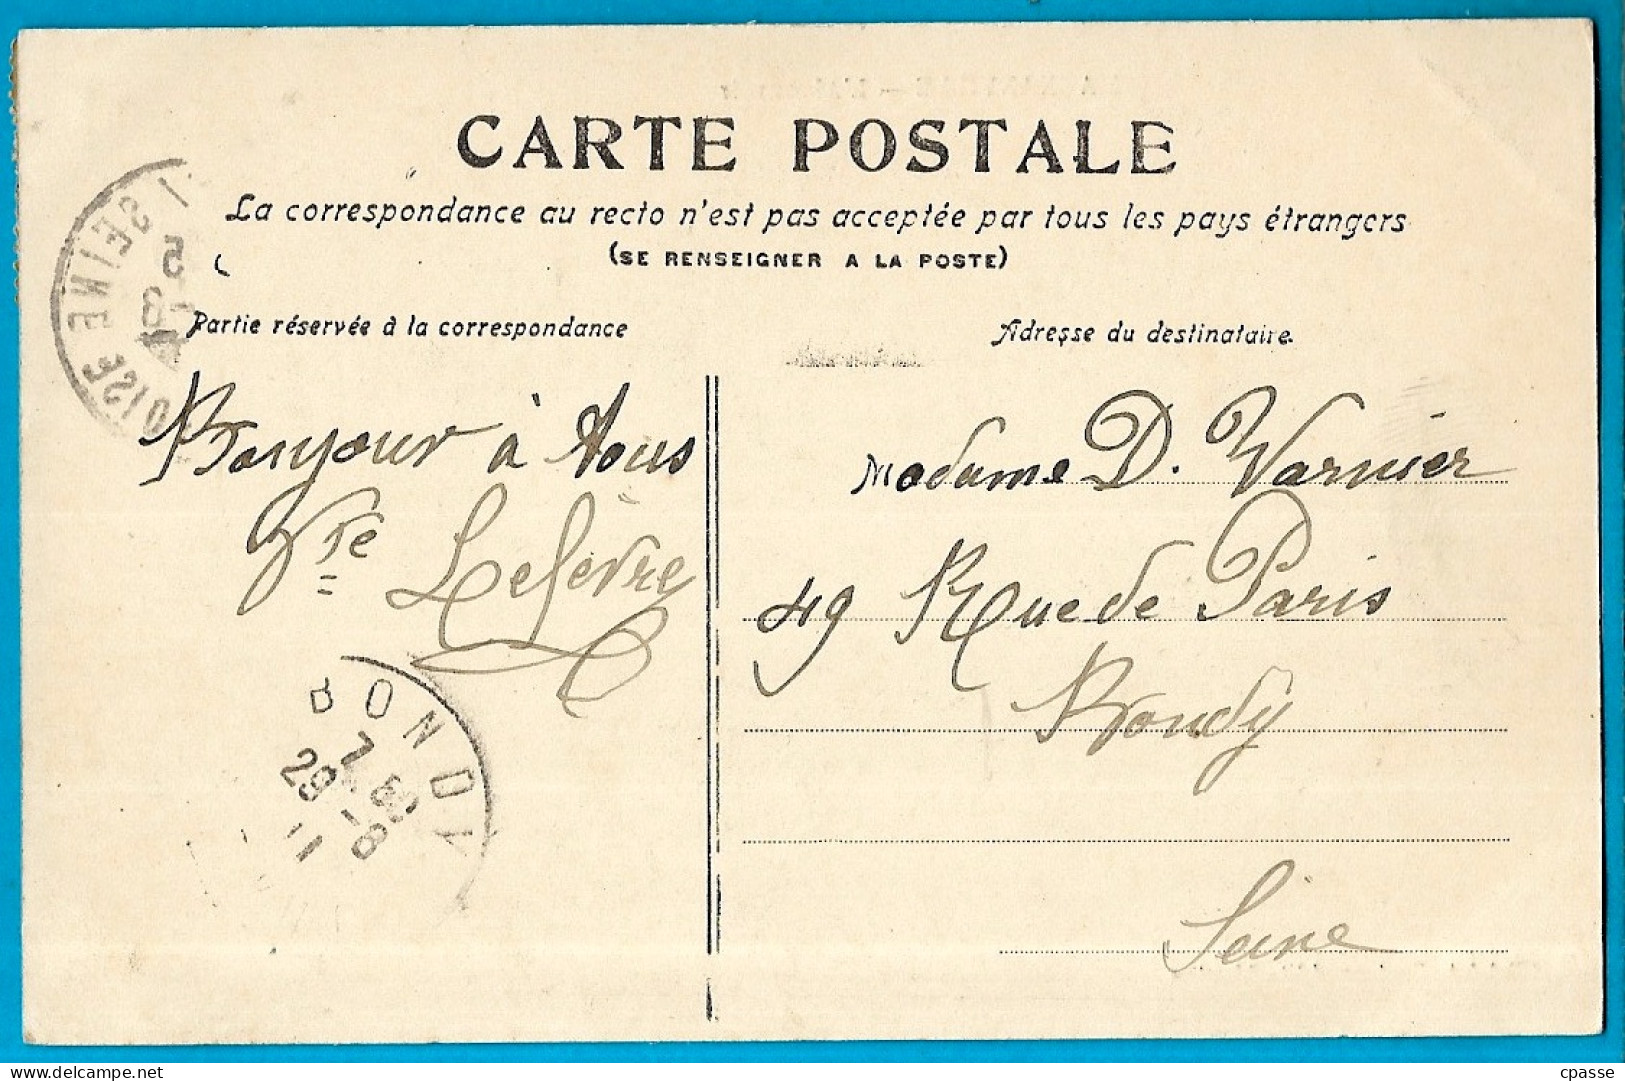 CARTE POSTALE
La correspondance au recto n'est pas acceptée par tous les pays étrangers
(SE RENSEIGNER A LA POSTE)
Partie réservée à la correspondance
Adresse du destinataire.
Bonjour à tous
Vve Lefèvre
Madame D. Varnier
49 Rue de Paris
Bondy
Seine
BONDY
7
29 -8
11
OISE
SEINE
5
cpasse